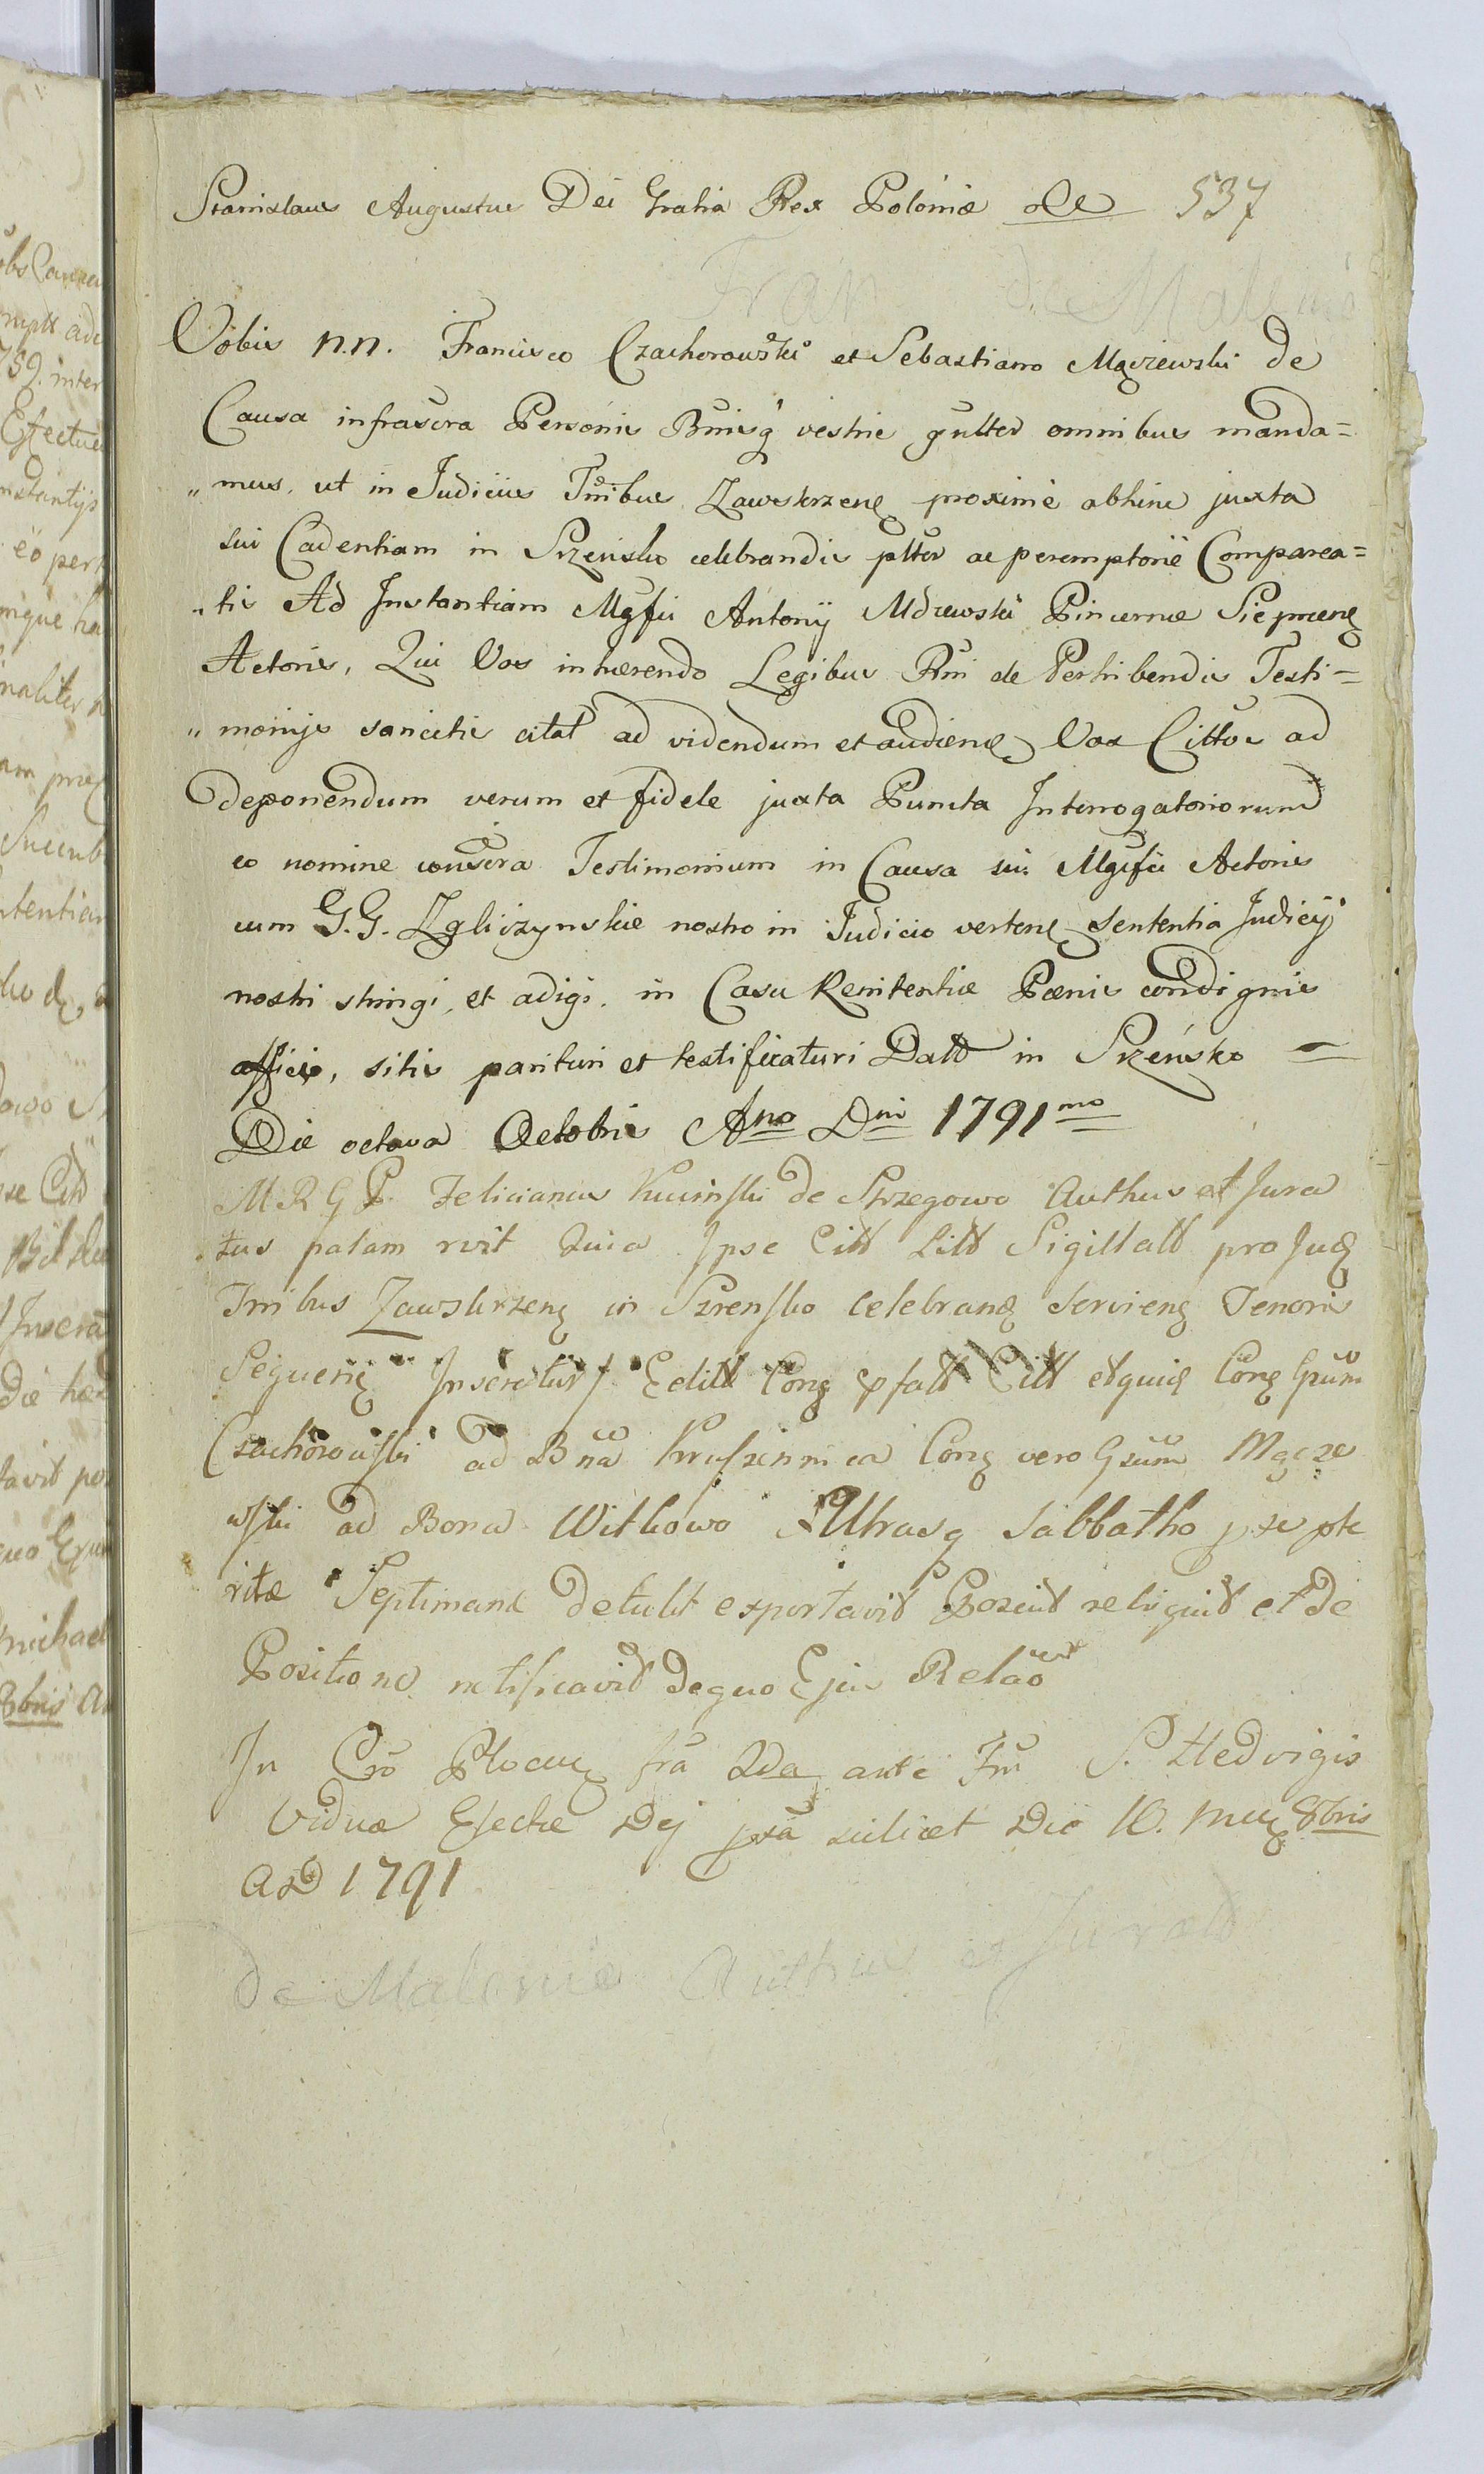 Stanislaus Augustus Dei Gratia Rex Poloniæ 537
Vobis n.n. Francisco Czachorowski et Sebastiano Mgczewski de
Causa infrascra Personis Bnisq vestris gnltter omnibus manda=
„mus, ut in Judiciis Tnibus Zawskrzenę proxime abhinc juxta
sui Cadentiam in Szrensko celebrandis pltter ac peremptorie Comparea=
„tis Ad Instantiam Mgfci Antonij Mdzewski Pincernæ Sieprcenę
Actoris, Qui Vos inhærendo Legibus Rni de Perhibendis Testi=
„monijs sancitis citat ad videndum et audienę Vos Cittos ad
deponendum verum et fidele juxta Puncta Interrogatoriorum
eo nomine conscra Testimonium in Causa sui Mgnfci Actoris
cum G.G. Zgliczynskie nostro in Judicio vertenę Sententia Judicij
nostri stringi, et adigi, in Casu Renitentiæ Pænis condignis
affici, sitis parituri et testificaturi Datt in Szrénsko
Die octava Octobris Ano Dni 1791mo
M R G P. Felicianus Kucinski de Strzegowo Authus et Jura
tus palam rvit Quia Ipse Citt Litt Sigillatt pro Judę
Tnibus Zawskrzenę in Szrensko Celebranę Servienę Tenoris
Sequenę Inseretur Editt Conę Citt Conę Gsum
Czachorowski ad Bna Kruszennica Conę vero Gsum Mgcze
wski ad Bona Witkowo Utrasq Sabbatho præte
ritæ Septimanæ detulit exportavit Posuit reliquit et de
Positione notificavit de quo Ejus Relao
In Cro Plocenę fra 2da ante Fm S. Hedvigis
Viduæ Electæ Dej pxa scilicet Die 10. Mensis 8bris
A D 1791
de Malenie Authus et Juratt